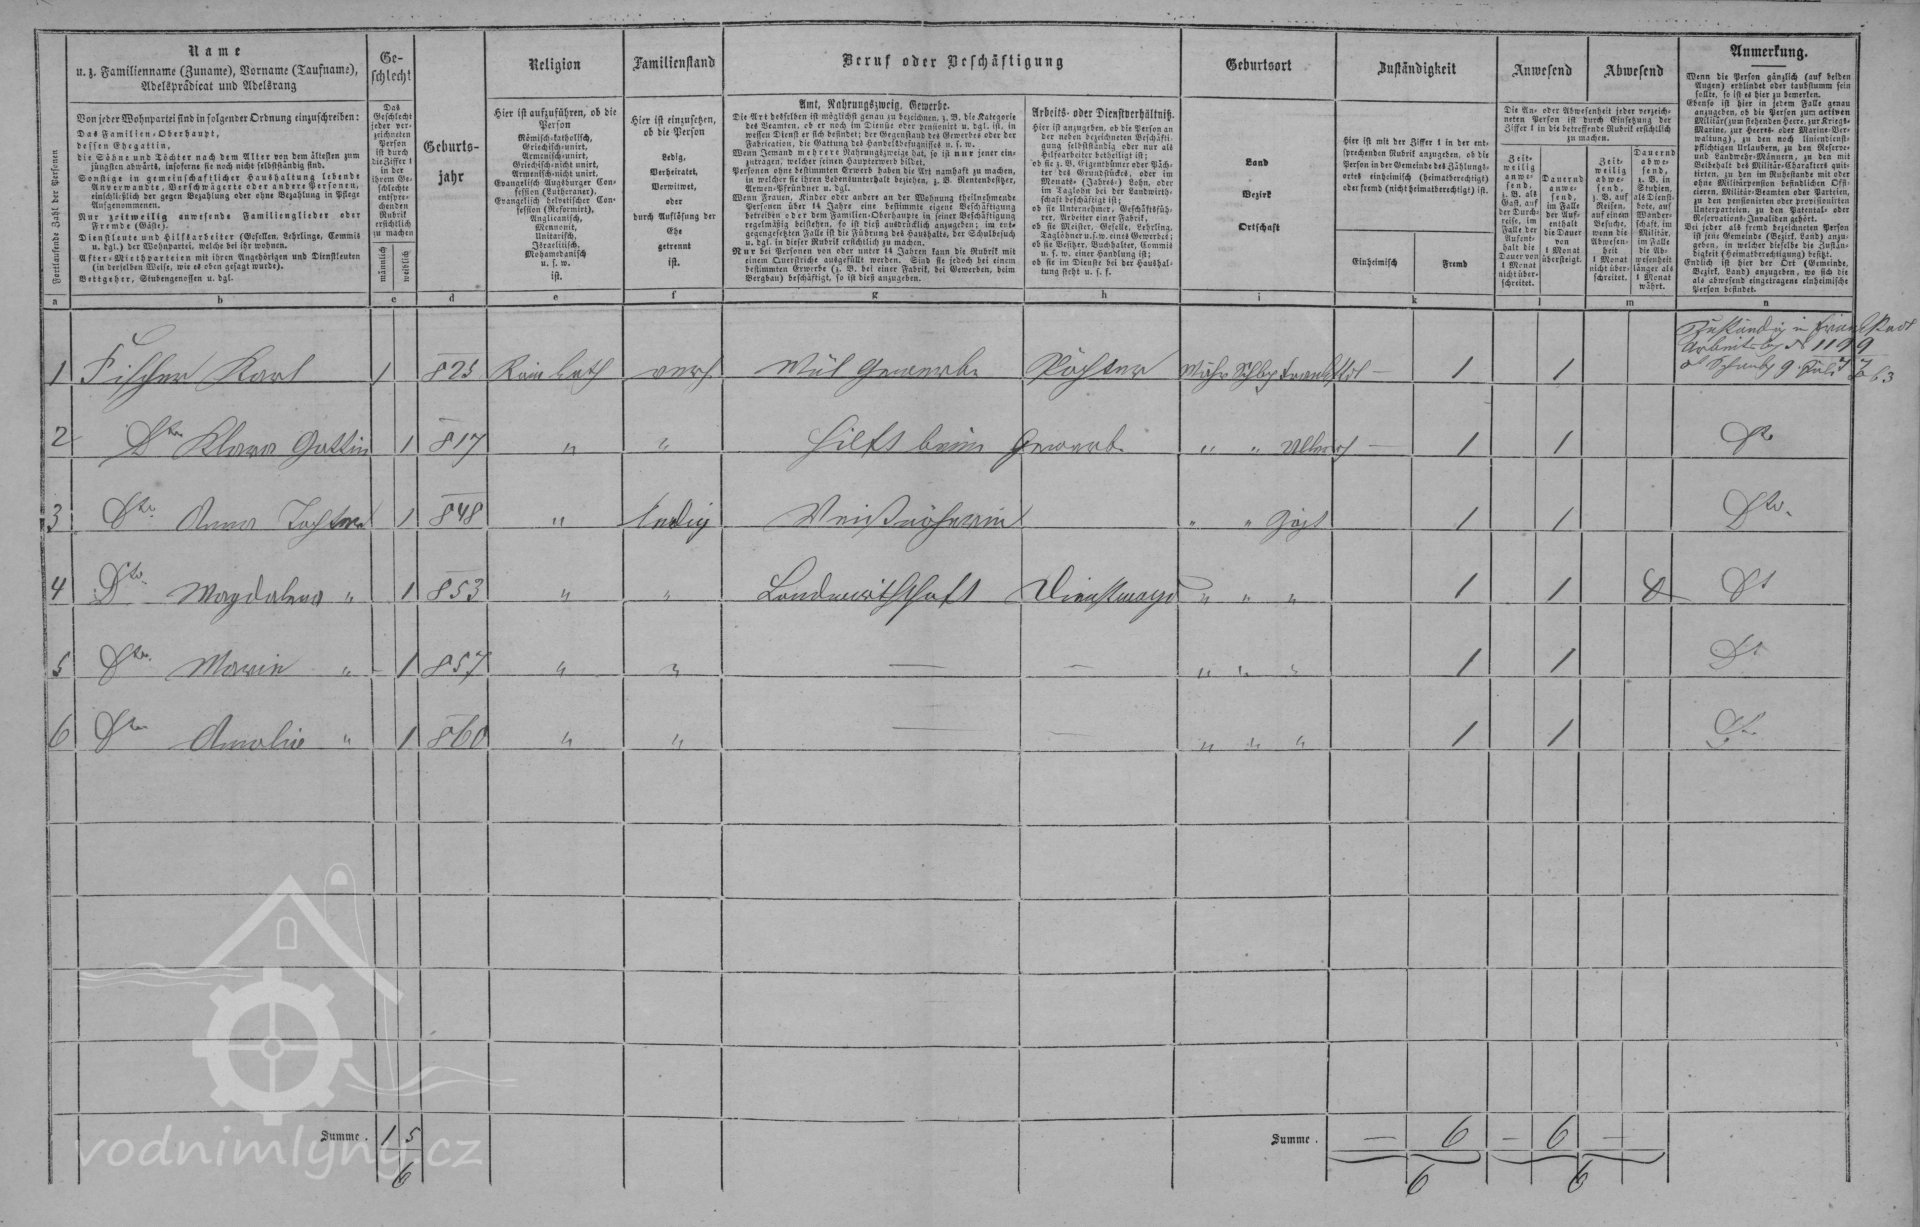 Name
u. z. Familienname (Zuname), Vorname (Taufname),
Adelsprädicat und Adelsrang
Von jeder Wohnpartei sind in folgender Ordnung einzuschreiben:
Das Familien-Oberhaupt,
dessen Ehegattin,
die Söhne und Töchter nach dem Alter von dem ältesten zum
jüngsten abwärts, insoferne sie noch nicht selbstständig sind.
Sonstige in gemeinschaftlicher Haushaltung lebende
Anverwandte, Verschwägerte oder andere Personen,
einschließlich der gegen Bezahlung oder ohne Bezahlung in Pflege
Aufgenommenen.
Nur zeitweilig anwesende Familienglieder oder
Fremde (Gäste).
Dienstleute und Hilfsarbeiter (Gesellen, Lehrlinge, Commis
u. dgl.) der Wohnpartei, welche bei ihr wohnen.
After-Miethparteien mit ihren Angehörigen und Dienstleuten
(in derselben Weise, wie es oben gesagt wurde).
Bettgeher, Stubengenossen u. dgl.
Fortlaufende Zahl der Personen
Ge-
schlecht
Das
Geschlecht
jeder ver-
zeichneten
Person
ist durch
die Ziffer 1
in der
ihrem Ge-
schlechte
entspre-
chenden
Rubrik
ersichtlich
zu machen
männlich
weiblich
Geburts-
jahr
Religion
Hier ist aufzuführen, ob die
Person
Römisch-katholisch,
Griechisch-unirt,
Armenisch-unirt,
Griechisch-nicht unirt,
Armenisch-nicht unirt,
Evangelisch Augsburger Con-
fession (Lutheraner),
Evangelisch helvetischer Con-
fession (Reformirt),
Anglicanisch,
Mennonit,
Unitarisch,
Israelitisch,
Mohamedanisch
u. s. w.
ist.
Familienstand
Hier ist einzusetzen,
ob die Person
ledig,
Verheiratet,
Verwitwet,
oder
durch Auflösung der
Ehe
getrennt
ist.
Beruf oder Beschäftigung
Amt, Nahrungszweig, Gewerbe.
Die Art desselben ist möglichst genau zu bezeichnen, z. B. die Kategorie
des Beamten, ob er noch im Dienste oder pensionirt u. dgl. ist, in
wessen Dienst er sich befindet; der Gegenstand des Gewerbes oder der
Fabrication, die Gattung des Handelsbefugnisses u. s. w.
Wenn Jemand mehrere Nahrungszweige hat, so ist nur jener ein-
zutragen, welcher seinen Haupterwerb bildet.
Personen ohne bestimmten Erwerb haben die Art namhaft zu machen,
in welcher sie ihren Lebensunterhalt beziehen, z. B. Rentenbesitzer,
Armen-Pfründner u. dgl.
Wenn Frauen, Kinder oder andere an der Wohnung theilnehmende
Personen über 14 Jahre eine bestimmte eigene Beschäftigung
betreiben oder dem Familien-Oberhaupte in seiner Beschäftigung
regelmäßig beistehen, so ist dieß ausdrücklich anzugeben; im ent-
gegengesetzten Falle ist die Führung des Haushalts, der Schulbesuch
u. dgl. in dieser Rubrik ersichtlich zu machen.
Nur bei Personen von oder unter 14 Jahren kann die Rubrik mit
einem Querstriche ausgefüllt werden. Sind sie jedoch bei einem
bestimmten Erwerbe (z. B. bei einer Fabrik, bei Gewerben, beim
Bergbau) beschäftigt, so ist dieß anzugeben.
Arbeits- oder Dienstverhältniß.
Hier ist anzugeben, ob die Person an
der neben bezeichneten Beschäfti-
gung selbstständig oder nur als
Hilfsarbeiter betheiligt ist;
ob sie z. B. Eigenthümer oder Päch-
ter des Grundstückes, oder im
Monats- (Jahres-) Lohn, oder
im Taglohn bei der Landwirth-
schaft beschäftigt ist;
ob sie Unternehmer, Geschäftsfüh-
rer, Arbeiter einer Fabrik,
ob sie Meister, Geselle, Lehrling,
Taglöhner u. s. w. eines Gewerbes;
ob sie Besitzer, Buchhalter, Commis
u. s. w. einer Handlung ist;
ob sie im Dienste bei der Haushal-
tung steht u. s. f.
Geburtsort
Land
Bezirk
Ortschaft
Zuständigkeit
Hier ist mit der Ziffer 1 in der ent-
sprechenden Rubrik anzugeben, ob die
Person in der Gemeinde des Zählungs-
ortes einheimisch (heimatberechtigt)
oder fremd (nicht heimatberechtigt) ist.
Einheimisch
Fremd
Anwesend
Abwesend
Die An- oder Abwesenheit jeder verzeich-
neten Person ist durch Einsetzung der
Ziffer 1 in die betreffende Rubrik ersichtlich
zu machen.
Zeit-
weilig
anwe-
send,
z. B. als
Gast, auf
der Durch-
reise, im
Falle der
Aufent-
halt die
Dauer von
1 Monat
nicht über-
schreitet.
Dauernd
anwe-
send,
im Falle
der Auf-
enthalt
die Dauer
von
1 Monat
übersteigt.
Zeit-
weilig
abwe-
send,
z. B. auf
Reisen,
auf einem
Besuche,
wenn die
Abwesen-
heit
1 Monat
nicht über-
schreitet.
Dauernd
abwe-
send,
z. B. in
Studien,
als Dienst-
bote, auf
Wander-
schaft, im
Militär,
im Falle
die Ab-
wesenheit
länger als
1 Monat
währt.
Anmerkung.
Wenn die Person gänzlich (auf beiden
Augen) erblindet oder taubstumm sein
sollte, so ist es hier zu bemerken.
Ebenso ist hier in jedem Falle genau
anzugeben, ob die Person zum activen
Militär (zum stehenden Heere, zur Kriegs-
Marine, zur Heeres- oder Marine-Ver-
waltung), zu den noch liniendienst-
pflichtigen Urlaubern, zu den Reserve-
und Landwehr-Männern, zu den mit
Beibehalt des Militär-Charakters quit-
tirten, zu den im Ruhestande mit oder
ohne Militärpension befindlichen Offi-
cieren, Militär-Beamten oder Parteien,
zu den pensionirten oder provisionirten
Unterparteien, zu den Patental- oder
Reservations-Invaliden gehört.
Bei jeder als fremd bezeichneten Person
ist jene Gemeinde (Bezirk, Land) anzu-
geben, in welcher dieselbe die Zustän-
digkeit (Heimatberechtigung) besitzt.
Endlich ist hier der Ort (Gemeinde,
Bezirk, Land) anzugeben, wo sich die
als abwesend eingetragene einheimische
Person befindet.
a b c d e f g h i k l m n
1 Fischer Karl 1 825 Röm kath verh Mül Gewerbe Pächter 1 1
Zuständig in Frankstadt
2 Dto Klara Gattin 1 817 " " Hilft beim Gewerbe " " 1 1 Dto
3 Dto Anna Tochter 1 848 " ledig Weißnäherin " " 1 1 Dto
4 Dto Magdalena " 1 853 " " Landwirthschaft Dienstmagd " " " 1 1 Dt
5 Dto Marie " 1 857 " " — — " " " 1 1 Dt
6 Dto Amalie " 1 860 " " — — " " " 1 1 Dto
Summe . 1 5
6
Summe . — 6 — 6 —
6 6
vodnimlyny.cz